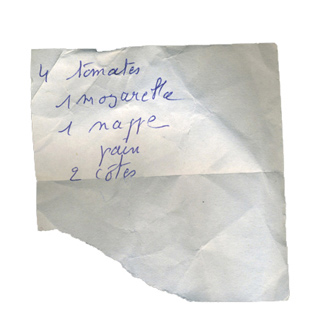 4 tomates
1 mozarella
1 nappe
pain
2 côtes